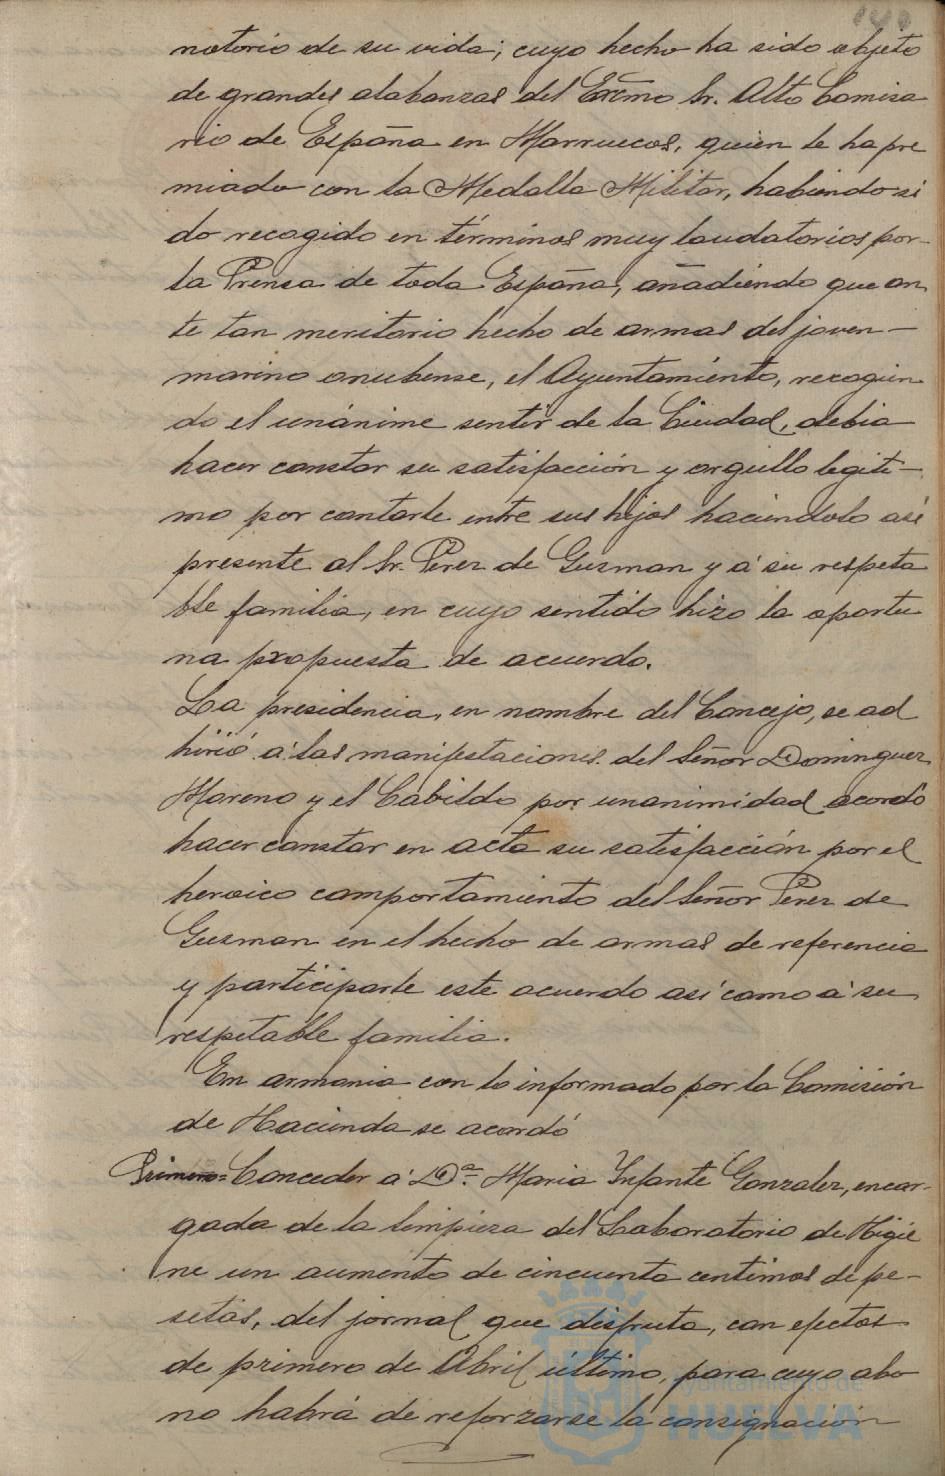 149
notorio de su vida; cuyo hecho ha sido objeto
de grandes alabanzas del Excmo Sr. Alto Comisa
rio de España en Marruecos, quien le ha pre
miado con la Medalla Militar, habiendo si
do recogido en términos muy laudatorios por
la Prensa de toda España, añadiendo que an
te tan meritorio hecho de armas del joven
marino onubense, el Ayuntamiento, recogien
do el unánime sentir de la Ciudad, debia
hacer constar su satisfacción y orgullo legiti-
mo por contarle entre sus hijos haciendolo asi
presente al Sr. Perez de Guzman y á su respeta
ble familia, en cuyo sentido hizo la oportu
na propuesta de acuerdo.
La presidencia, en nombre del Concejo, se ad
hirió á las manifestaciones del Señor Dominguez
Moreno y el Cabildo por unanimidad acordó
hacer constar en acta su satisfacción por el
heroico comportamiento del Señor Perez de
Guzman en el hecho de armas de referencia
y participarle este acuerdo así como á su
respetable familia.
En armonia con lo informado por la Comisión
de Hacienda se acordó
Primero= Conceder á Dª. Maria Infante Gonzalez, encar-
gada de la limpieza del Laboratorio de Higie
ne un aumento de cincuenta centimos de pe-
setas, del jornal que disfruta, con efectos
de primero de Abril último, para cuyo abo
no habrá de reforzarse la consignación
Ayuntamiento de
HUELVA